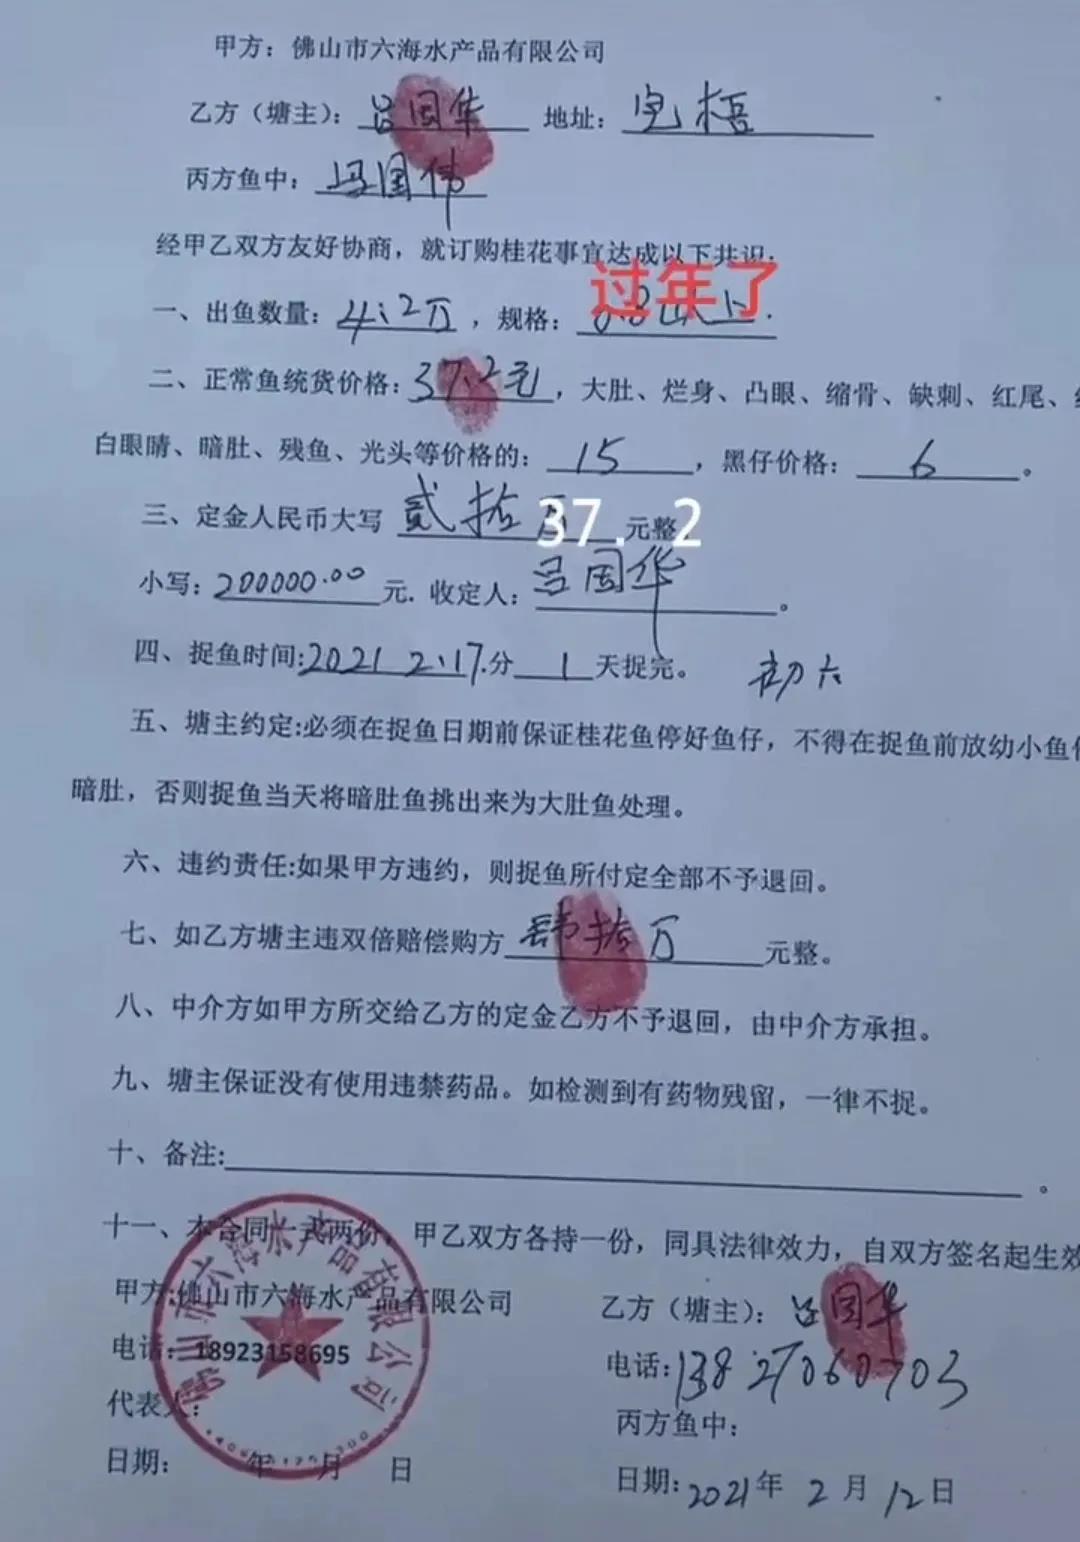 甲方：佛山市六海水产品有限公司
乙方（塘主）：吕国华 地址：
丙方鱼中：冯国伟
经甲乙双方友好协商，就订购桂花事宜达成以下共识：
过年了
一、出鱼数量：4.2万，规格：0.8以上.
二、正常鱼统货价格：37.2元，大肚、烂身、凸眼、缩骨、缺刺、红尾、
白眼睛、暗肚、残鱼、光头等价格的：15，黑仔价格：6。
三、定金人民币大写 贰拾万 元整，
37. 2
小写：200000.00元. 收定人：吕国华。
四、捉鱼时间:2021 2.17.分 1 天捉完。 初六
五、塘主约定:必须在捉鱼日期前保证桂花鱼停好鱼仔，不得在捉鱼前放幼小鱼仔
暗肚，否则捉鱼当天将暗肚鱼挑出来为大肚鱼处理。
六、违约责任:如果甲方违约，则捉鱼所付定全部不予退回。
七、如乙方塘主违双倍赔偿购方 肆拾万 元整。
八、中介方如甲方所交给乙方的定金乙方不予退回，由中介方承担。
九、塘主保证没有使用违禁药品。如检测到有药物残留，一律不捉。
十、备注: 。
十一、本合同一式两份，甲乙双方各持一份，同具法律效力，自双方签名起生效
佛山市六海水产品有限公司
甲方:佛山市六海水产品有限公司
电话：18923158695
代表人：
日期： 年 月 日
乙方（塘主）：吕国华
电话:13827060703
丙方鱼中:
日期:2021年 2 月 12日